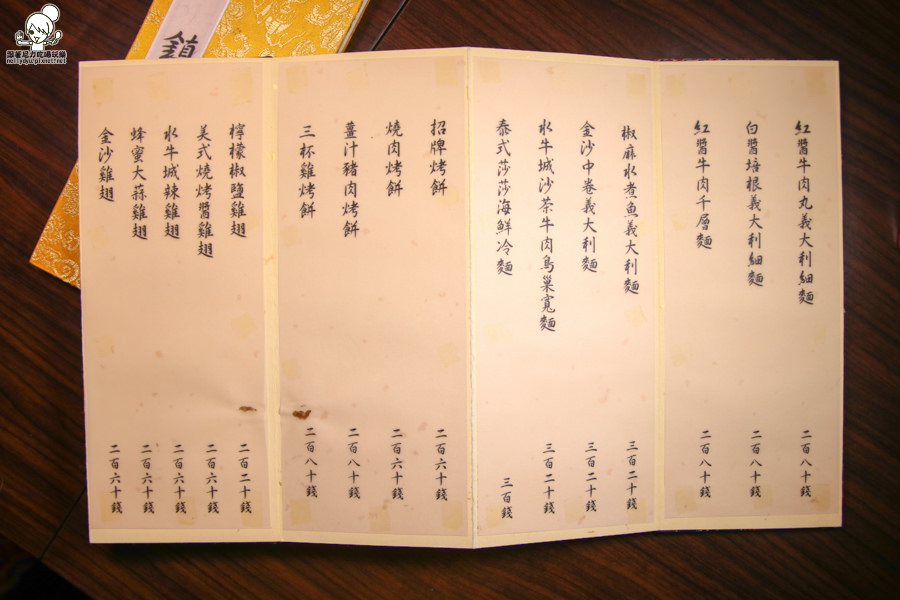 紅醬牛肉丸義大利細麵 二百八十錢
白醬培根義大利細麵 二百八十錢
紅醬牛肉千層麵 二百八十錢
椒麻水煮魚義大利麵 三百二十錢
金沙中卷義大利麵 三百二十錢
水牛城沙茶牛肉鳥巢寬麵 三百二十錢
泰式莎莎海鮮冷麵 三百錢
招牌烤餅 二百六十錢
燒肉烤餅 二百六十錢
薑汁豬肉烤餅 二百八十錢
三杯雞烤餅 二百八十錢
檸檬椒鹽雞翅 二百二十錢
美式燒烤醬雞翅 二百六十錢
水牛城辣雞翅 二百六十錢
蜂蜜大蒜雞翅 二百六十錢
金沙雞翅 二百六十錢
鎮
跟著尼力吃喝玩樂
nellydyu.pixnet.net